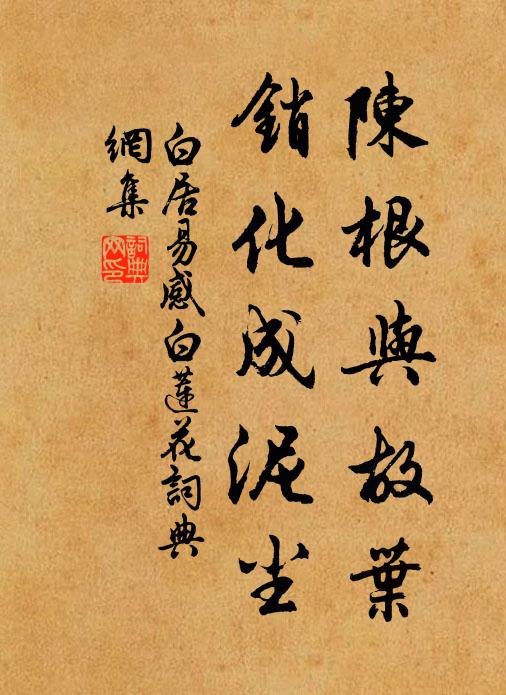 陳根與故葉
銷化成泥尘
白居易感白蓮花詞典
網集
詞典网印